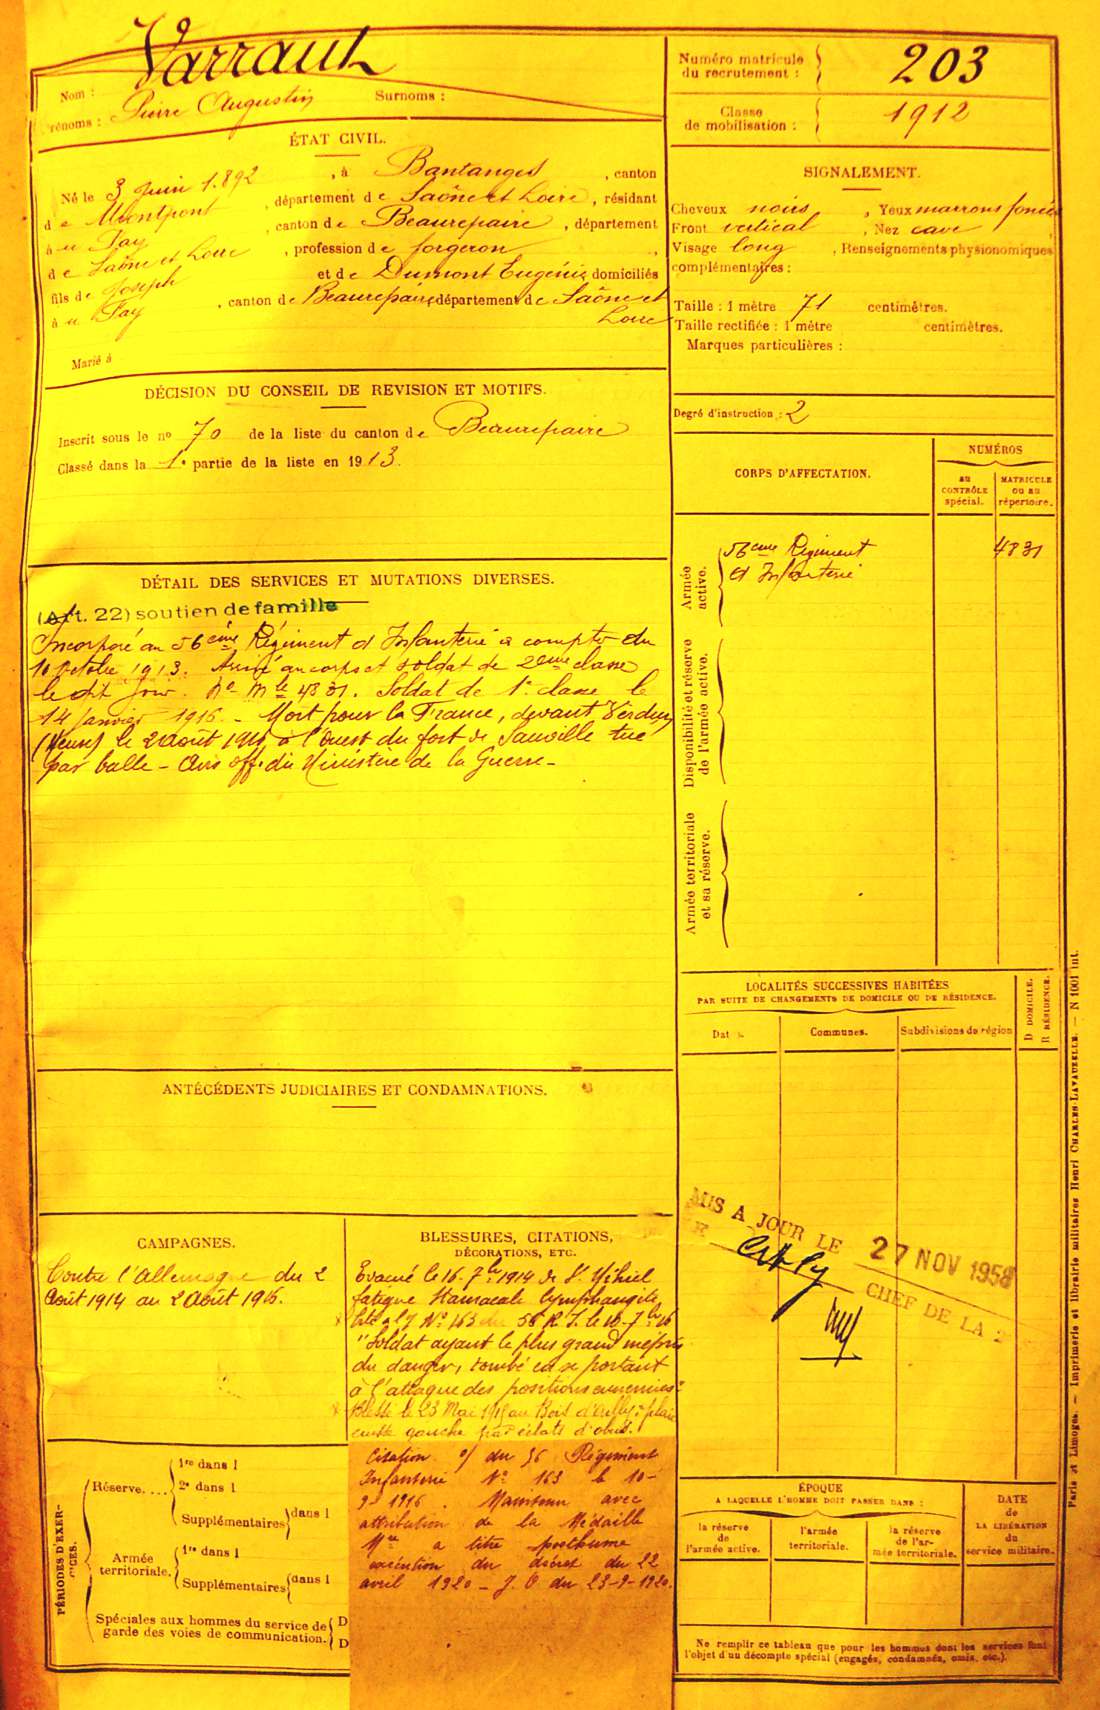 Nom : Varraut
Prénoms : Pierre Augustin Surnoms :
Numéro matricule du recrutement : 203
Classe de mobilisation : 1912
ÉTAT CIVIL.
Né le 3 Juin 1892, à Bantanges, canton
de Montpont, département de Saône et Loire, résidant
à u Fay, canton de Beaurepaire, département
de Saône et Loire, profession de forgeron,
fils de Joseph et de Dumont Eugénie domiciliés
à u Fay, canton de Beaurepaire département de Saône et
Loire
Marié à
SIGNALEMENT.
Cheveux noirs, Yeux marrons foncés
Front vertical, Nez cave
Visage long, Renseignements physionomiques
complémentaires :
Taille : 1 mètre 71 centimètres.
Taille rectifiée : 1 mètre centimètres.
Marques particulières :
Degré d'instruction : 2
DÉCISION DU CONSEIL DE REVISION ET MOTIFS.
Inscrit sous le no 70 de la liste du canton de Beaurepaire
Classé dans la 1e partie de la liste en 1913.
CORPS D'AFFECTATION.
NUMÉROS
AU CONTRÔLE spécial.
MATRICULE OU AU répertoire.
Armée active.
56eme Régiment 4831
d'Infanterie
Disponibilité et réserve de l'armée active.
Armée territoriale et sa réserve.
DÉTAIL DES SERVICES ET MUTATIONS DIVERSES.
(Art. 22) soutien de famille
Incorporé au 56ème Régiment d'Infanterie à compter du
10 Octobre 1913. Arrivé au corps et soldat de 2eme classe
le dit jour. No Mle 4831. Soldat de 1e classe le
14 Janvier 1916. - Mort pour la France, devant Verdun
(Meuse) le 2 Août 1916 à l'ouest du fort de Souville tué
par balle - Avis off. du Ministère de la Guerre -
LOCALITÉS SUCCESSIVES HABITÉES
PAR SUITE DE CHANGEMENTS DE DOMICILE OU DE RÉSIDENCE.
Dates.
Communes.
Subdivisions de région
D DOMICILE.
R RÉSIDENCE.
ANTÉCÉDENTS JUDICIAIRES ET CONDAMNATIONS.
MIS A JOUR LE 27 NOV 1958
CHEF DE LA 2
CAMPAGNES.
Contre l'Allemagne du 2
Août 1914 au 2 Août 1916.
BLESSURES, CITATIONS,
DÉCORATIONS, ETC.
Evacué le 16-7bre 1914 de St Mihiel
fatigue lymphangite
No 163 du 56 R.I. le 10-7bre 16
"Soldat ayant le plus grand mépris
du danger, tombé en se portant
à l'attaque des positions ennemies"
Blessé le 23 Mai 1915 au Bois d'Ailly: plaie
cuisse gauche par éclats d'obus.
Citation o/ du 56 Régiment
Infanterie No 163 le 10-
9-1916. Maintenu avec
attribution de la Médaille
Mre à titre posthume
exécution du décret du 22
avril 1920 - J.O du 23-9-1920.
PÉRIODES D'EXERCICES.
Réserve....
1re dans l
2e dans l
Supplémentaires dans l
Armée territoriale.
1re dans l
Supplémentaires dans l
Spéciales aux hommes du service de garde des voies de communication.
D
D
ÉPOQUE
A LAQUELLE L'HOMME DOIT PASSER DANS :
la réserve de l'armée active.
l'armée territoriale.
la réserve de l'armée territoriale.
DATE de LA LIBÉRATION du service militaire.
Ne remplir ce tableau que pour les hommes dont les services font
l'objet d'un décompte spécial (engagés, condamnés, omis, etc.).
Paris et Limoges. — Imprimerie et librairie militaires Henri CHARLES-LAVAUZELLE. — N 1001 int.